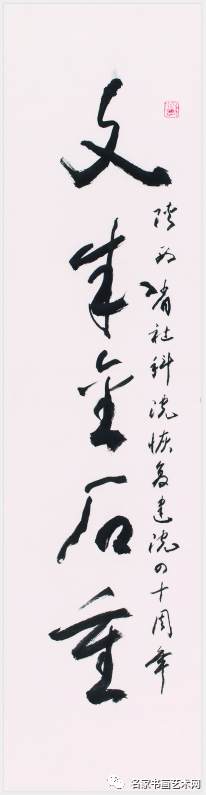 陕西省社科院恢复建院四十周年
文成金石重
名家书画艺术网